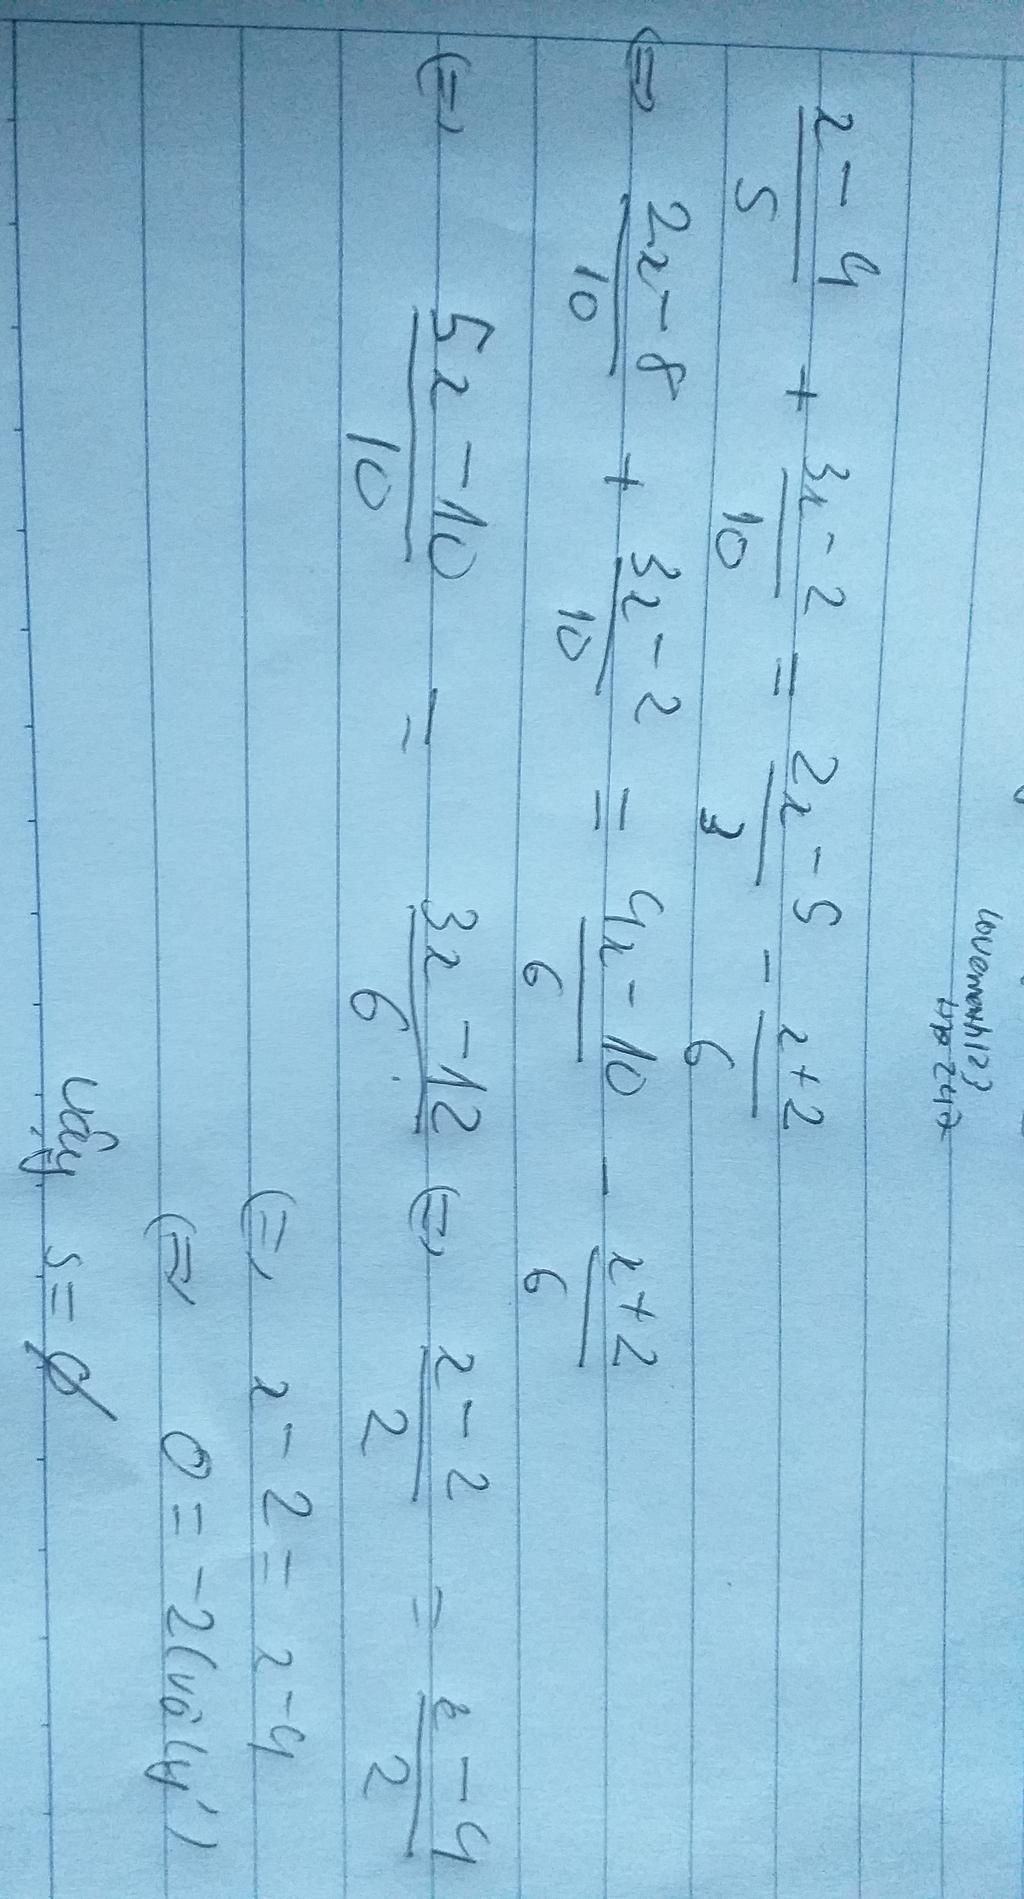 lovemanh123
Hp 247
x - 4 / 5 + 3x - 2 / 10 = 2x - 5 / 3 - x + 2 / 6
⇔ 2x - 8 / 10 + 3x - 2 / 10 = 4x - 10 / 6 - x + 2 / 6
⇔ 5x - 10 / 10 = 3x - 12 / 6 ⇔ x - 2 / 2 = x - 4 / 2
⇔ x - 2 = x - 4
⇔ 0 = -2 (vô lý)
Vậy S = ∅